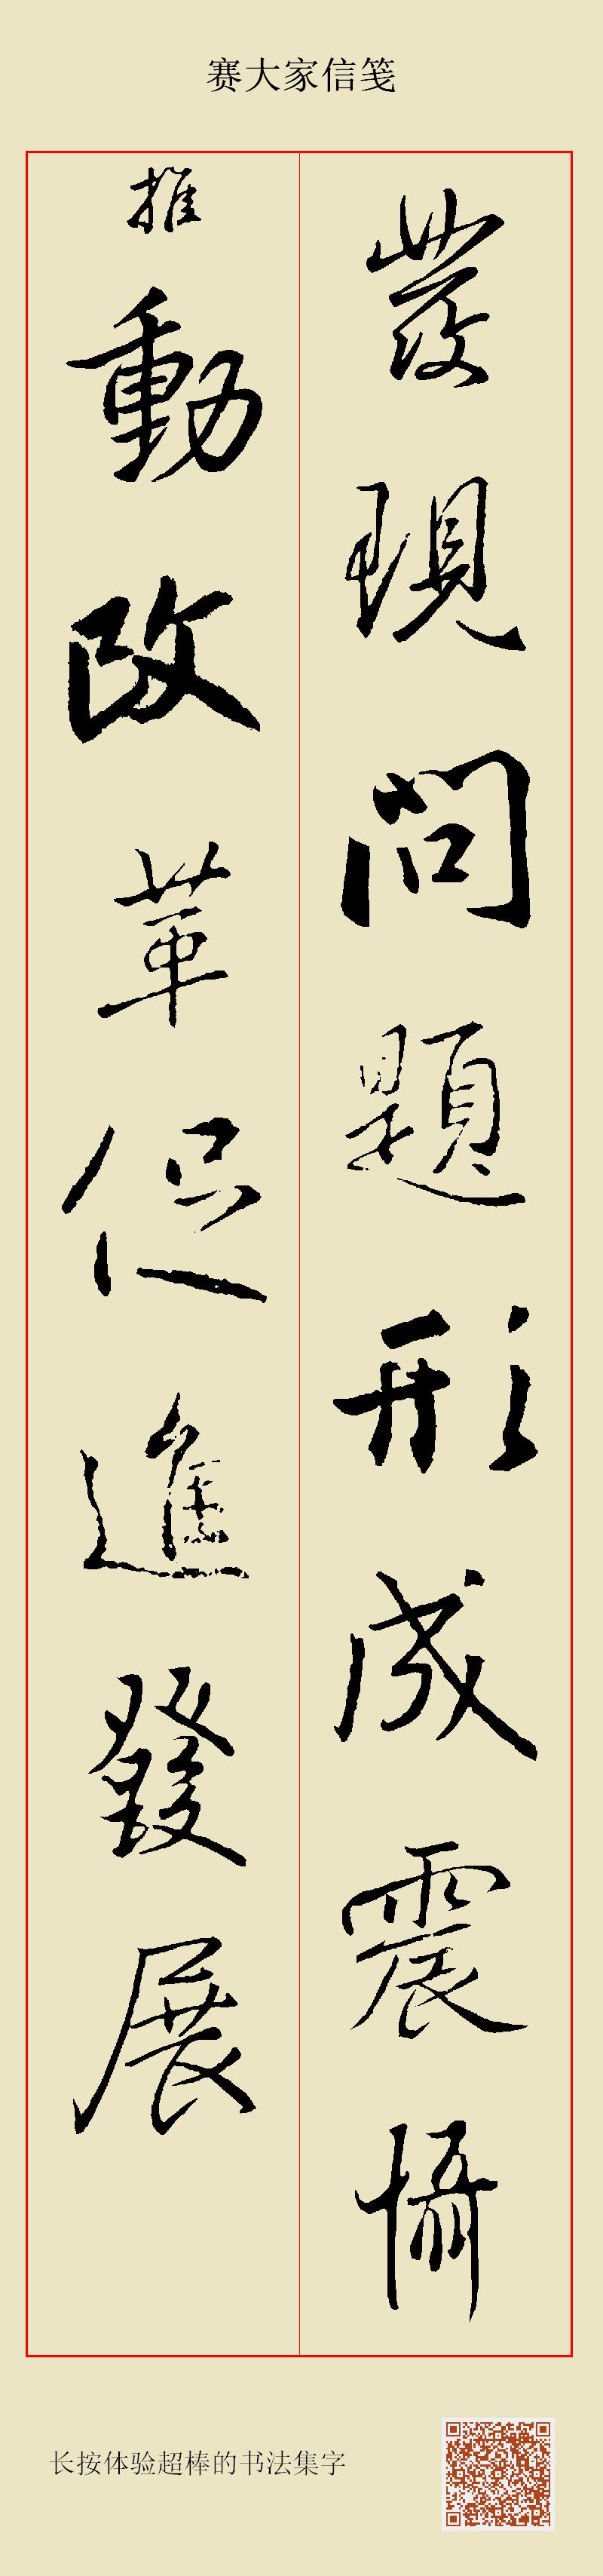 赛大家信笺
發現問題形成震懾
推動改革促進發展
长按体验超棒的书法集字